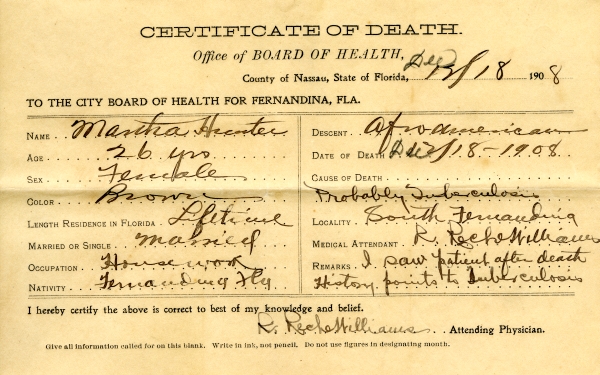 CERTIFICATE OF DEATH.
Office of BOARD OF HEALTH,
County of Nassau, State of Florida, Dec 12/18 1908
TO THE CITY BOARD OF HEALTH FOR FERNANDINA, FLA.
NAME Martha Hunter
AGE 26 yrs
SEX Female
COLOR Brown
LENGTH RESIDENCE IN FLORIDA Lifetime
MARRIED OR SINGLE Married
OCCUPATION House work
NATIVITY Fernandina Fla
DESCENT Afro american
DATE OF DEATH Dec 18-1908
CAUSE OF DEATH
Probably Tuberculosis
LOCALITY South Fernandina
MEDICAL ATTENDANT R. Williams
REMARKS I saw patient after death
History points to Tuberculosis
I hereby certify the above is correct to best of my knowledge and belief.
R. Williams Attending Physician.
Give all information called for on this blank. Write in ink, not pencil. Do not use figures in designating month.